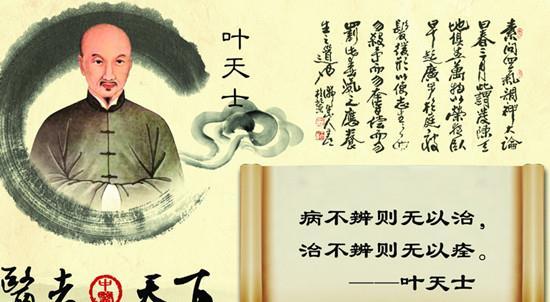 叶天士
素问四气调神大论
曰春三月此谓发陈天
地俱生万物以荣夜卧
早起广步於庭被
髮缓形以使志生生而
勿殺予而勿奪賞而勿
罰此春氣之應養
生之道也
病不辨则无以治，
治不辨则无以痊。
——叶天士
醫者中醫天下